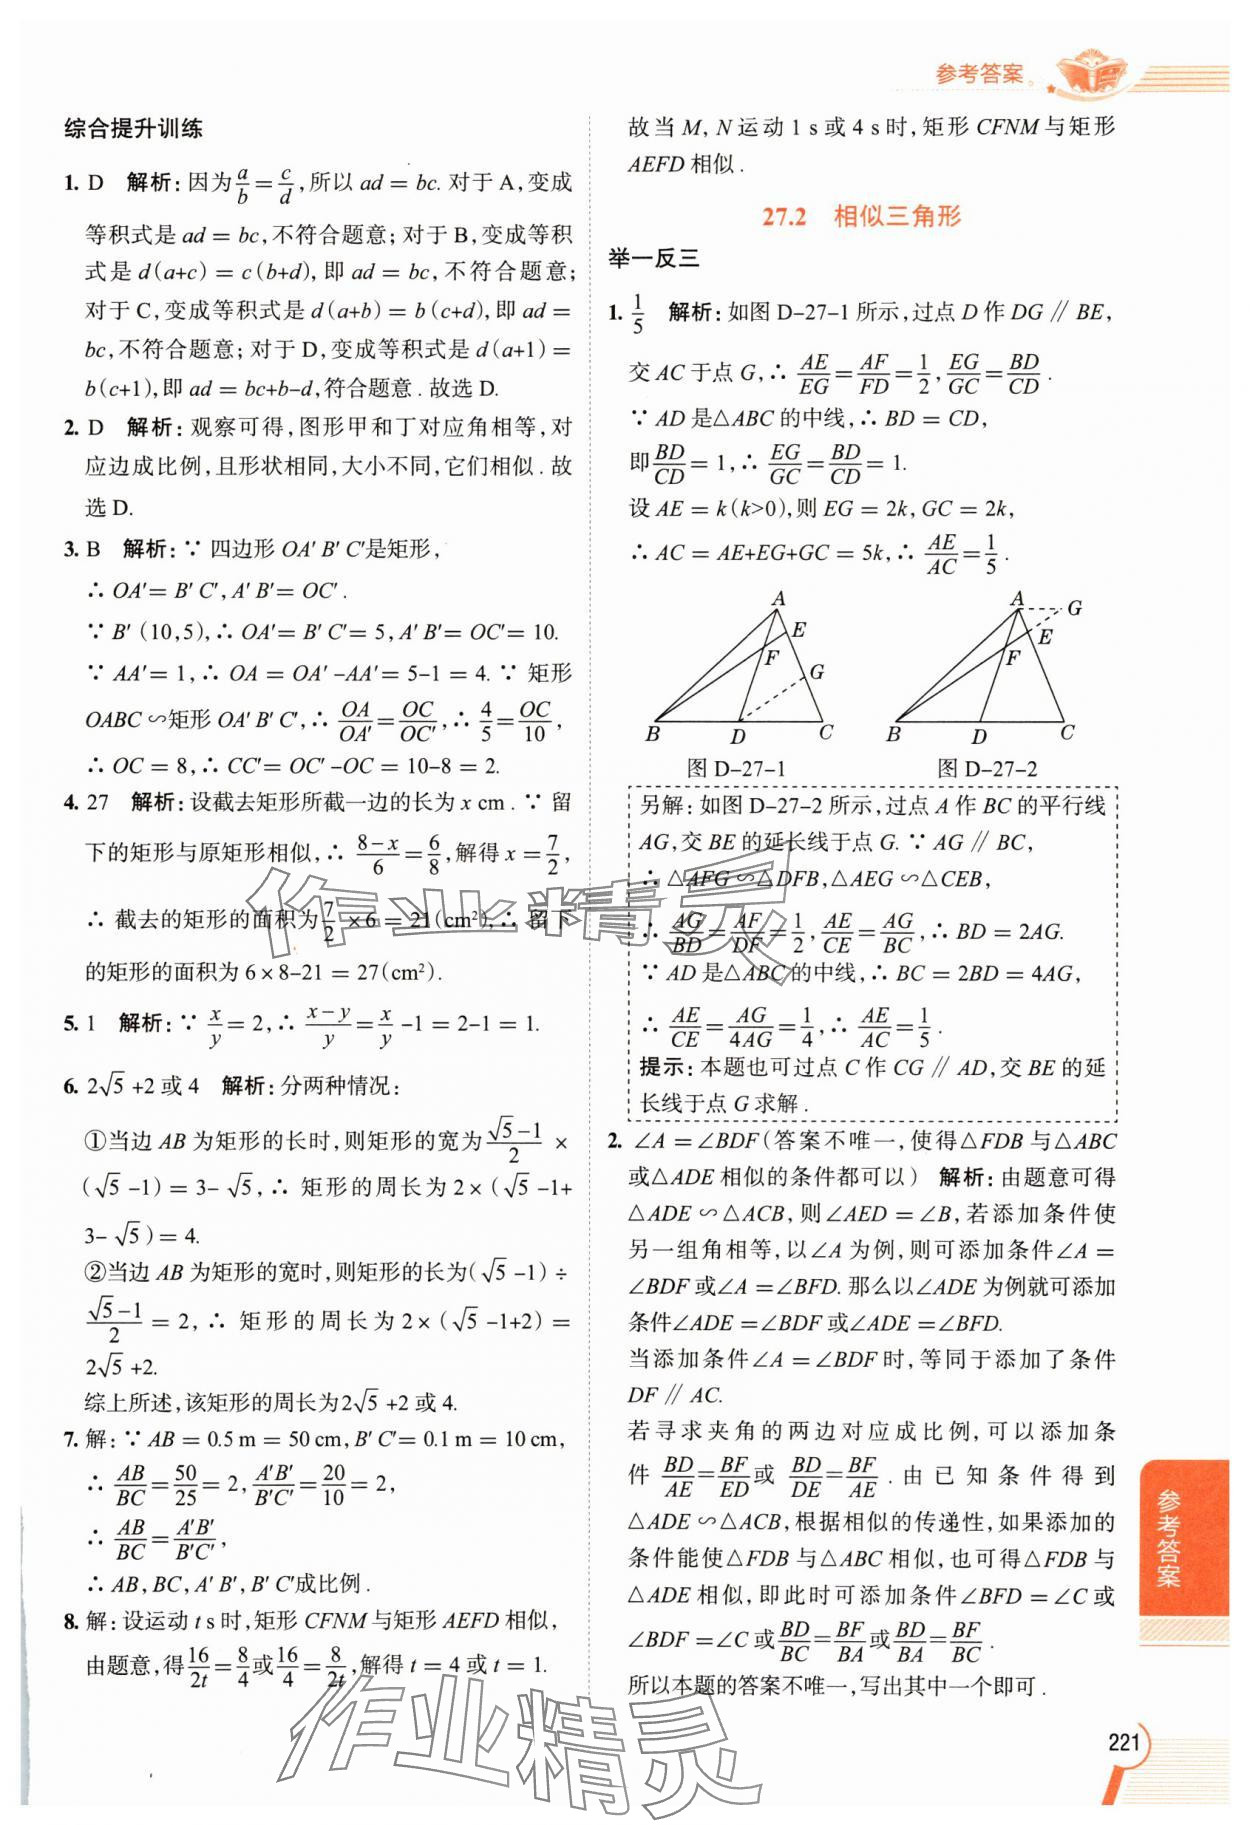 参考答案
综合提升训练
1. D 解析:因为a/b=c/d,所以 ad = bc. 对于 A,变成
等积式是 ad = bc,不符合题意;对于 B,变成等积
式是 d(a+c) = c(b+d),即 ad = bc,不符合题意;
对于 C,变成等积式是 d(a+b) = b(c+d),即 ad =
bc,不符合题意;对于 D,变成等积式是 d(a+1) =
b(c+1),即 ad = bc+b-d,符合题意.故选 D.
2. D 解析:观察可得,图形甲和丁对应角相等,对
应边成比例,且形状相同,大小不同,它们相似.故
选 D.
3. B 解析:∵ 四边形 OA′B′C′是矩形,
∴ OA′= B′C′,A′B′= OC′.
∵ B′(10,5),∴ OA′= B′C′= 5,A′B′= OC′= 10.
∵ AA′= 1,∴ OA = OA′-AA′= 5-1 = 4. ∵ 矩形
OABC ∽矩形 OA′B′C′,∴ OA/OA′=OC/OC′,∴ 4/5=OC/10,
∴ OC = 8,∴ CC′= OC′-OC = 10-8 = 2.
4. 27 解析:设截去矩形所截一边的长为 x cm.∵ 留
下的矩形与原矩形相似,∴ (8-x)/6=6/8,解得 x = 7/2,
∴ 截去的矩形的面积为7/2×6 = 21(cm²),∴ 留下
的矩形的面积为 6×8-21 = 27(cm²).
5. 1 解析:∵ x/y= 2,∴ (x-y)/y=x/y-1 = 2-1 = 1.
6. 2√5+2 或 4 解析:分两种情况:
①当边 AB 为矩形的长时,则矩形的宽为(√5-1)/2 ×
(√5-1) = 3-√5,∴ 矩形的周长为 2×(√5-1+
3-√5) = 4.
②当边 AB 为矩形的宽时,则矩形的长为(√5-1) ÷
(√5-1)/2 = 2,∴ 矩形的周长为 2×(√5-1+2) =
2√5+2.
综上所述,该矩形的周长为2√5+2 或 4.
7. 解:∵ AB = 0.5 m = 50 cm,B′C′= 0.1 m = 10 cm,
∴ AB/BC=50/25= 2,A′B′/B′C′=20/10= 2,
∴ AB/BC=A′B′/B′C′,
∴ AB,BC,A′B′,B′C′成比例.
8. 解:设运动 t s 时,矩形 CFNM 与矩形 AEFD 相似,
由题意,得16/2t=8/4或16/4=8/2t,解得 t = 4 或 t = 1.
故当 M, N 运动 1 s 或 4 s 时,矩形 CFNM 与矩形
AEFD 相似.
27.2 相似三角形
举一反三
1. 1/5 解析:如图 D-27-1 所示,过点 D 作 DG ∥ BE,
交 AC 于点 G,∴ AE/EG=AF/FD=1/2,EG/GC=BD/CD.
∵ AD 是△ABC 的中线,∴ BD = CD,
即BD/CD= 1,∴ EG/GC=BD/CD= 1.
设 AE = k(k>0),则 EG = 2k,GC = 2k,
∴ AC = AE+EG+GC = 5k,∴ AE/AC=1/5.
A
E
F
G
B
D
C
A
G
E
F
B
D
C
图 D-27-1
图 D-27-2
另解:如图 D-27-2 所示,过点 A 作 BC 的平行线
AG,交 BE 的延长线于点 G. ∵ AG ∥ BC,
∴ △AFG ∽△DFB,△AEG ∽△CEB,
∴ AG/BD=AF/DF=1/2,AE/CE=AG/BC,∴ BD = 2AG.
∵ AD 是△ABC 的中线,∴ BC = 2BD = 4AG,
∴ AE/CE=AG/4AG=1/4,∴ AE/AC=1/5.
提示:本题也可过点 C 作 CG ∥ AD,交 BE 的延
长线于点 G 求解.
2. ∠A = ∠BDF(答案不唯一,使得△FDB 与△ABC
或△ADE 相似的条件都可以) 解析:由题意可得
△ADE ∽ △ACB,则∠AED = ∠B,若添加条件使
另一组角相等,以∠A 为例,则可添加条件∠A =
∠BDF 或∠A = ∠BFD. 那么以∠ADE 为例就可添加
条件∠ADE = ∠BDF 或∠ADE = ∠BFD.
当添加条件∠A = ∠BDF 时,等同于添加了条件
DF ∥ AC.
若寻求夹角的两边对应成比例,可以添加条
件 BD/AE=BF/ED或 BD/DE=BF/AE.由已知条件得到
△ADE ∽△ACB,根据相似的传递性,如果添加的
条件能使△FDB 与△ABC 相似,也可得△FDB 与
△ADE 相似,即此时可添加条件∠BFD = ∠C 或
∠BDF = ∠C 或BD/BC=BF/BA或BD/BA=BF/BC.
所以本题的答案不唯一,写出其中一个即可.
参考答案
221
作业精灵
作业精灵